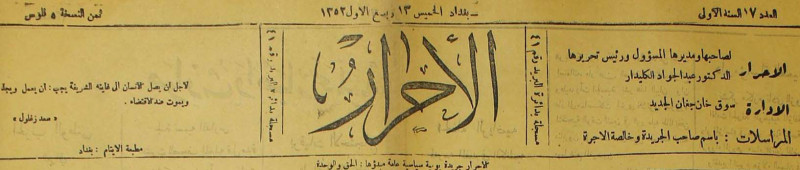 العدد ١٧ السنة الاولى
بغداد الخميس ١٣ ربيع الاول ١٣٥٢
ثمن النسخة ٥ فلوس
الاحرار
لصاحبها ومديرها المسؤول ورئيس تحريرها
الدكتور عبد الجواد الكليدار
الادارة
سوق خان جغان الجديد
المراسلات : باسم صاحب الجريدة وخالصة الاجرة
مسجلة بدائرة البريد رقم ٤١
الاحرار
مسجلة بدائرة البريد رقم ٤١
لاجل ان يصل الانسان الى غايته الشريفة يجب : ان يعمل
ويموت عند الاقتضاء .
« سعد زغلول »
مطبعة الايتام : بغداد
الاحرار جريدة يومية سياسية عامة مبدؤها : الحق والوحدة